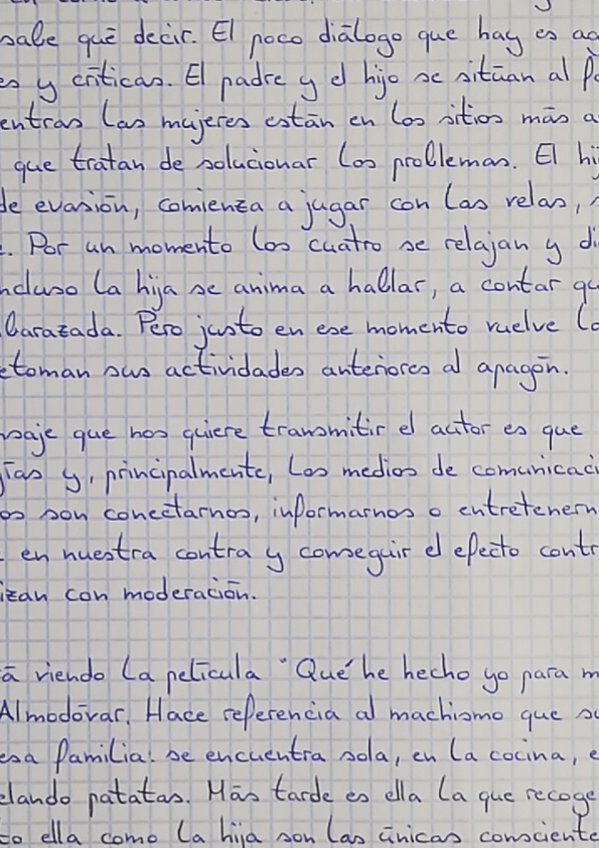 sabe qué decir. El poco diálogo que hay es ac
es y críticas. El padre y el hijo se sitúan al
entras las mujeres están en los sitios más a
que tratan de solucionar los problemas. El hi
de evasión, comienza a jugar con las velas,
. Por un momento los cuatro se relajan y di
ncluso la hija se anima a hablar, a contar qu
barazada. Pero justo en ese momento vuelve l
etoman sus actividades anteriores al apagón.
nsaje que nos quiere transmitir el autor es que
gías y, principalmente, los medios de comunicaci
os son conectarnos, informarnos o entretenern
en nuestra contra y conseguir el efecto contr
izan con moderación.
á viendo la película "Qué he hecho yo para m
Almodóvar. Hace referencia al machismo que su
esa familia: se encuentra sola, en la cocina, e
elando patatas. Más tarde es ella la que recoge
to ella como la hija son las únicas consciente